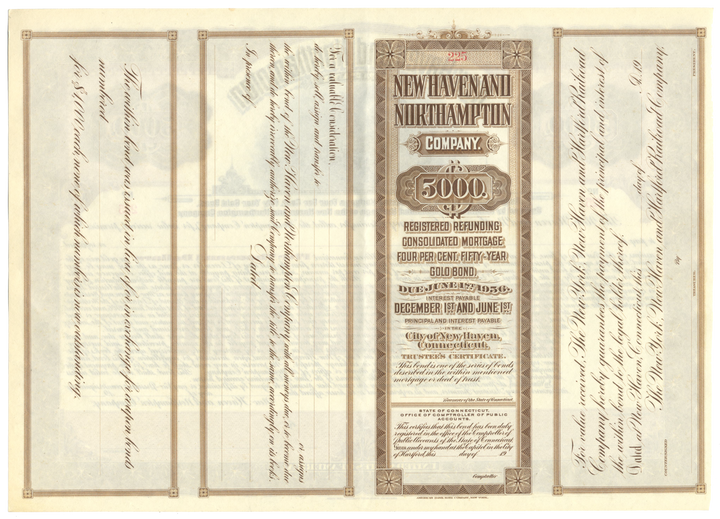 The within bond was issued in lieu of or in exchange for coupon bonds
numbered
for $1,000 each none of which numbers is now outstanding.
For valuable Consideration,
do hereby sell, assign and transfer to
or assigns
the within bond of the New Haven and Northampton Company, with all moneys due, or to become due
thereon, and do hereby irrevocably authorize said Company to transfer the title to the same, accordingly, on its books.
Dated
In presence of
225
NEW HAVEN AND
NORTHAMPTON
COMPANY.
5000.
REGISTERED REFUNDING
CONSOLIDATED MORTGAGE
FOUR PER CENT. FIFTY-YEAR
GOLD BOND,
DUE JUNE 1ST 1956.
INTEREST PAYABLE
DECEMBER 1ST AND JUNE 1ST
PRINCIPAL AND INTEREST PAYABLE
IN THE
City of New Haven,
Connecticut.
TRUSTEE'S CERTIFICATE.
This bond is one of the series of bonds
described in the within mentioned
mortgage or deed of trust.
Treasurer of the State of Connecticut
STATE OF CONNECTICUT,
OFFICE OF COMPTROLLER OF PUBLIC
ACCOUNTS.
This certifies that this bond has been duly
registered in the office of the Comptroller of
Public Accounts of the State of Connecticut
Given under my hand at the Capitol in the City
of Hartford, this day of 19
Comptroller
For value received, The New York, New Haven and Hartford Railroad
Company, hereby guarantees the payment of the principal and interest of
the within bond to the legal holder thereof.
Dated at New Haven, Connecticut, this day of A.D. 19
The New York, New Haven and Hartford Railroad Company,
By